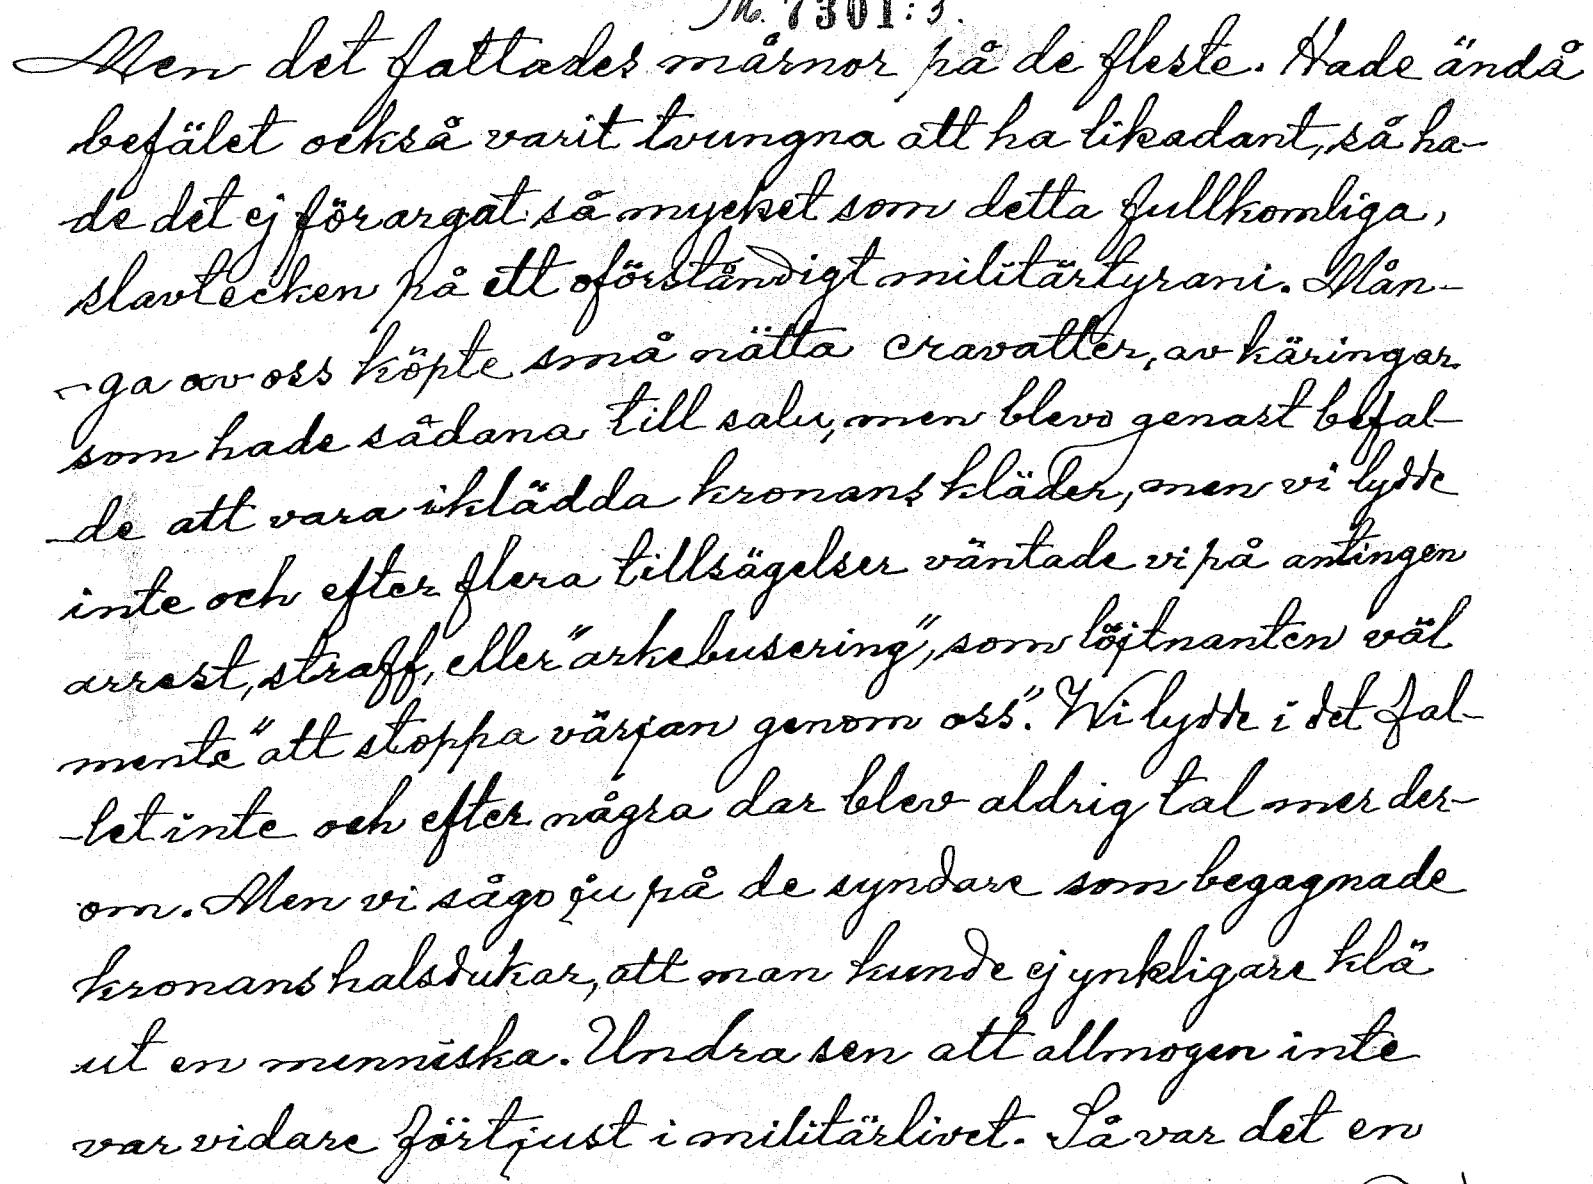 M. 7301:3.
Men det fattades mårnor på de fleste. Hade ändå
befälet också varit tvungna att ha likadant, så ha-
de det ej förargat så mycket som detta fullkomliga,
slavtecken på ett oförståndigt militärtyrani. Mån-
-ga av oss köpte små nätta cravatter, av käringar
som hade sådana till salu, men blevo genast befal-
-de att vara iklädda kronans kläder, men vi lydde
inte och efter flera tillsägelser väntade vi på antingen
arrest, straff, eller "arkebusering", som löjtnanten väl
mente "att stoppa värjan genom oss". Wi lydde i det fal-
-let inte och efter några dar blev aldrig tal mer der-
om. Men vi sågo ju på de syndare som begagnade
kronans halsdukar, att man kunde ej ynkligare klä
ut en menniska. Undra sen att allmogen inte
var vidare förtjust i militärlivet. Så var det en